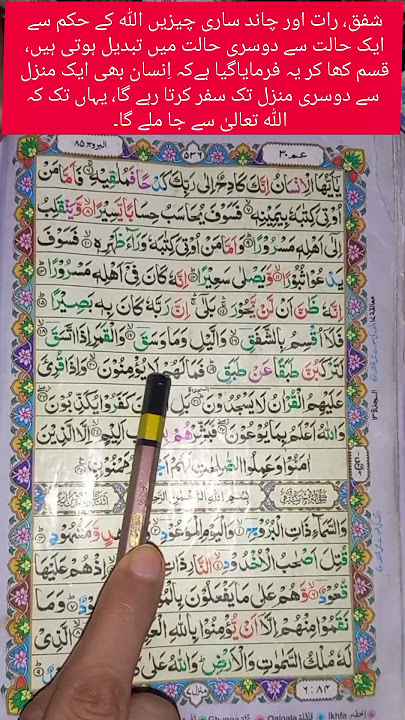 شفق، رات اور چاند ساری چیزیں اللہ کے حکم سے
ایک حالت سے دوسری حالت میں تبدیل ہوتی ہیں،
قسم کھا کر یہ فرمایاگیا ہےکہ اِنسان بھی ایک منزل
سے دوسری منزل تک سفر کرتا رہے گا، یہاں تک کہ
اللہ تعالیٰ سے جا ملے گا۔
البروج ٨٥
٥٣٦
عم ٣٠
يٰۤاَيُّهَا الْاِنْسَانُ اِنَّكَ كَادِحٌ اِلٰى رَبِّكَ كَدْحًا فَمُلٰقِيْهِ ۚ فَاَمَّا مَنْ
اُوْتِىَ كِتٰبَهٗ بِيَمِيْنِهٖ ۙ فَسَوْفَ يُحَاسَبُ حِسَابًا يَّسِيْرًا ۙ وَّيَنْقَلِبُ
اِلٰٓى اَهْلِهٖ مَسْرُوْرًا ؕ وَاَمَّا مَنْ اُوْتِىَ كِتٰبَهٗ وَرَآءَ ظَهْرِهٖ ۙ فَسَوْفَ
يَدْعُوْا ثُبُوْرًا ۙ وَّيَصْلٰى سَعِيْرًا ؕ اِنَّهٗ كَانَ فِىْۤ اَهْلِهٖ مَسْرُوْرًا
اِنَّهٗ ظَنَّ اَنْ لَّنْ يَّحُوْرَ ۛۚ بَلٰٓى ۛۚ اِنَّ رَبَّهٗ كَانَ بِهٖ بَصِيْرًا
فَلَاۤ اُقْسِمُ بِالشَّفَقِ ۙ وَالَّيْلِ وَمَا وَسَقَ ۙ وَالْقَمَرِ اِذَا اتَّسَقَ
لَتَرْكَبُنَّ طَبَقًا عَنْ طَبَقٍ ؕ فَمَا لَهُمْ لَا يُؤْمِنُوْنَ ۙ وَاِذَا قُرِئَ
عَلَيْهِمُ الْقُرْاٰنُ لَا يَسْجُدُوْنَ بَلِ الَّذِيْنَ كَفَرُوْا يُكَذِّبُوْنَ
وَاللّٰهُ اَعْلَمُ بِمَا يُوْعُوْنَ فَبَشِّرْهُمْ اَلِيْمٍ ۙ اِلَّا الَّذِيْنَ
اٰمَنُوْا وَعَمِلُوا الصّٰلِحٰتِ لَهُمْ
بِسْمِ اللّٰهِ الرَّحْمٰنِ
وَالسَّمَآءِ ذَاتِ الْبُرُوْجِ ۙ وَالْيَوْمِ الْمَوْعُوْدِ وَّمَشْهُوْدٍ
قُتِلَ اَصْحٰبُ الْاُخْدُوْدِ ۙ النَّارِ ذَاتِ اِذْ هُمْ عَلَيْهَا
قُعُوْدٌ ۙ وَّهُمْ عَلٰى مَا يَفْعَلُوْنَ وَمَا
نَقَمُوْا مِنْهُمْ اِلَّاۤ اَنْ يُّؤْمِنُوْا بِاللّٰهِ الَّذِىْ
لَهٗ مُلْكُ السَّمٰوٰتِ وَالْاَرْضِ ؕ وَاللّٰهُ عَلٰى
٦:٨٤
منزل ٧
Ikhfa
Qalqala
Ghunna